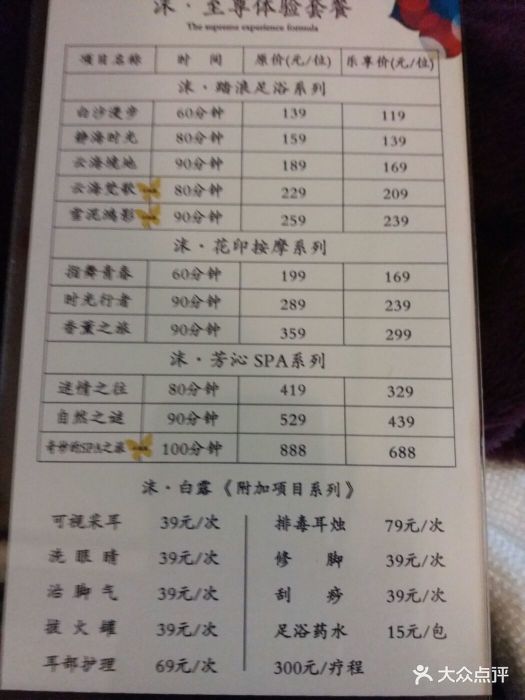 沫·至尊体验套餐
The supreme experience formula
项目名称 时 间 原价(元/位) 乐享价(元/位)
沫·踏浪足浴系列
白沙漫步 60分钟 139 119
静海时光 80分钟 159 139
云海境地 90分钟 189 169
云海梵歌 80分钟 229 209
雪泥鸿影 90分钟 259 239
沫·花印按摩系列
指舞青春 60分钟 199 169
时光行者 90分钟 289 239
香薰之旅 90分钟 359 299
沫·芳沁SPA系列
迷情之往 80分钟 419 329
自然之谜 90分钟 529 439
奇妙的SPA之旅 100分钟 888 688
沫·白露《附加项目系列》
可视采耳 39元/次 排毒耳烛 79元/次
洗眼睛 39元/次 修 脚 39元/次
治脚气 39元/次 刮 痧 39元/次
拔火罐 39元/次 足浴药水 15元/包
耳部护理 69元/次 300元/疗程
大众点评